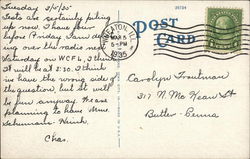 Tuesday 3/5/35
Tests are certainly piling
up now. I have four
before Friday. I am
ing over the radio next
Saturday on WCFL, I think
it will be at 2:30. I think
we have the wrong side of
the question, but it will
be fun anyway. Please
planning to have Mme
Schumann-Heink
Chas.
POST
CARD
WHEATON, ILL.
MAR 5
5-PM
1935
26734
Carolyn Troutman
317 N. McKean St
Butler - Penna